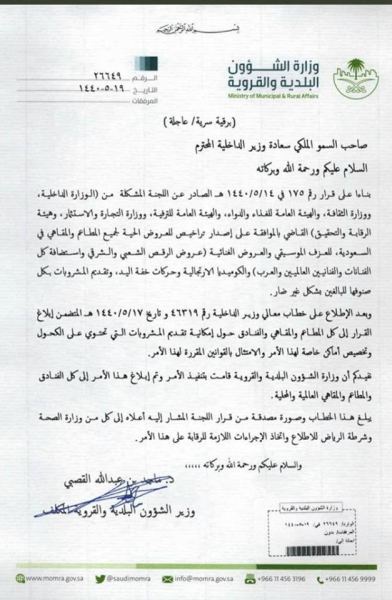 بسم الله الرحمن الرحيم
وزارة الشؤون
البلدية والقروية
Ministry of Municipal & Rural Affairs
الرقم ٢٦٦٤٩
التاريخ ١٩-٥-١٤٤٠
المرفقات
(برقية سرية/ عاجلة)
صاحب السمو الملكي سعادة وزير الداخلية المحترم
السلام عليكم ورحمة الله وبركاته
بناءا على قرار رقم ١٧٥ في ١٤٤٠/٥/١٤هـ الصادر عن اللجنة المشكلة من (الوزارة الداخلية،
ووزارة الثقافة، والهيئة العامة للغذاء والدواء، والهيئة العامة للترفية، ووزارة التجارة والاستثار، وهيئة
الرقابة والتحقيق) القتاضي بالموافقة على إصدار تراخيص للعروض الحية لجميع المطاعم والمقاهي في
السعودية، للعزف الموسيقي والعروض الغنائية (عروض الرقص الشعبي والشرقي واستضافة كل
الفنانات والفنانيين العالميين والعرب) والكوميديا الارتجالية وحركات خفة اليد، وتقديم المشروبات بكل
صنوفها للبالغين بشكل غير ضار.
وبعد الإطلاع على خطاب معالي وزير الداخلية رقم ٤٦٣١٩ و تاريخ ١٤٤٠/٥/١٧هـ المتضمن إبلاغ
القرار إلى كل المطاعم والمقاهي والفنادق حول إمكانية تقديم المشروبات التي تحتوي على الكحول
وتخصيص أماكن خاصة لهذا الأمر والامتثال بالقوانين المقررة لهذا الأمر.
نفيدكم أن وزارة الشؤون البلدية والقروية قامت بتنفيذ الأمر وتم إبلاغ هذا الأمر إلى كل الفنادق
والمطاعم والمقاهي العالمية والمحلية.
يبلغ هذا الخطاب وصورة مصدقة من قرار اللجنة المشار إليه أعلاه إلى كل من وزارة الصحة
وشرطة الرياض للاطلاع واتخاذ الإجراءات اللازمة للرقابة على هذا الأمر.
والسلام عليكم ورحمة الله وبركاته ،،،،،
د. ماجد بن عبدالله القصبي
وزير الشؤون البلدية والقروية المكلف
وزارة الشؤون البلدية والقروية
الوارد: ٢٦٦٤٩ في: ١٩-٥-١٤٤٠
المرفقات: بدون
احالة الى:
www.momra.gov.sa
@saudimomra
info@momra.gov.sa
+966 11 456 3196
+966 11 456 9999